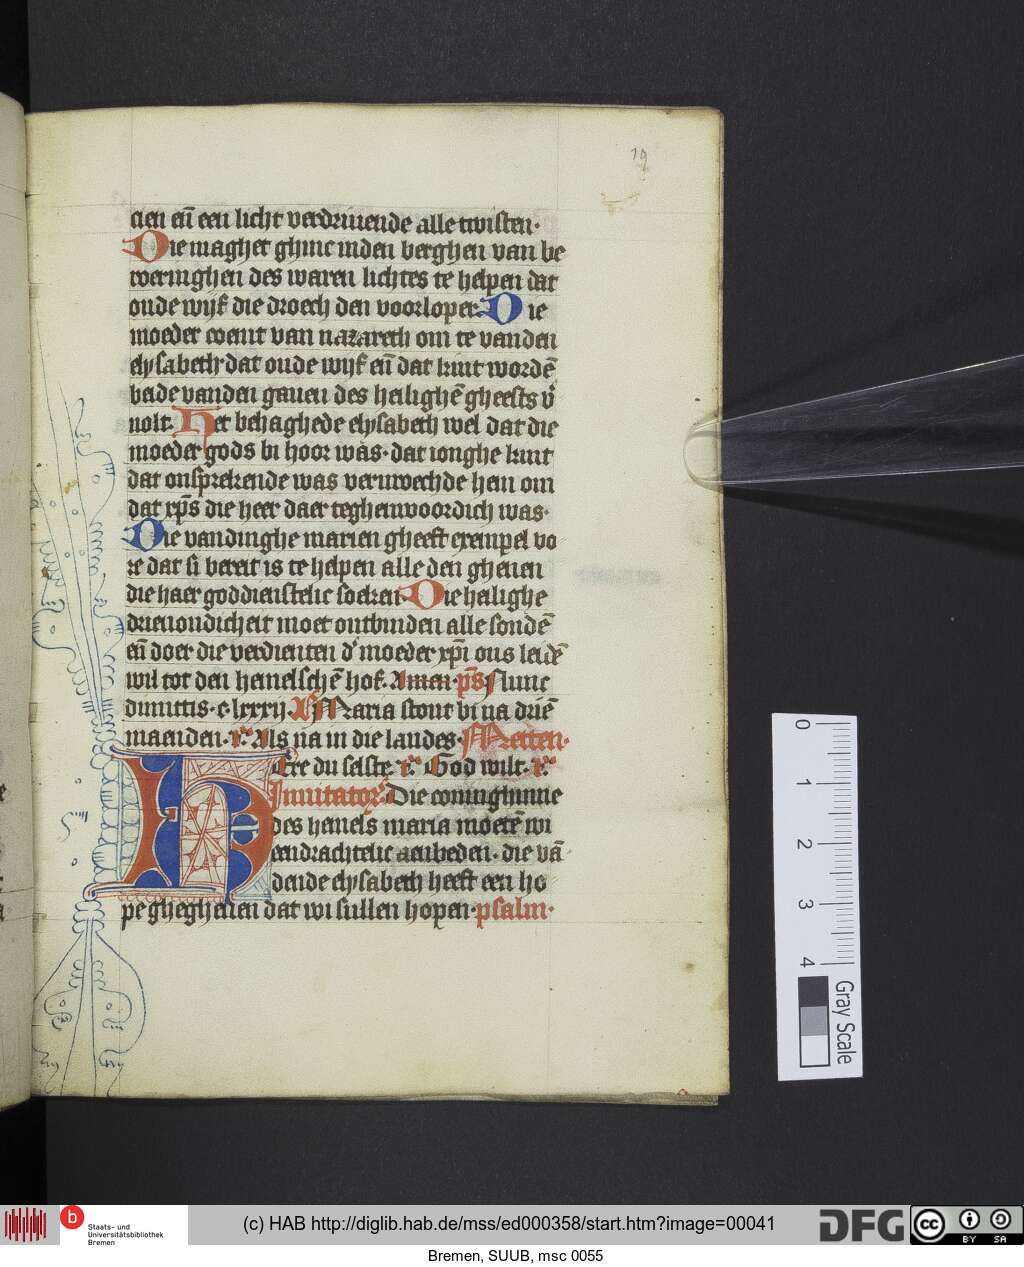 19
cien en̄ een licht verdriuende alle twisten·
Die maghet ghinc inden berghen van be
weringhen des waren lichtes te helpen dat
oude wijf die droech den voorloper. Die
moeder coemt van nazareth om te vanden
elysabeth· dat oude wijf en̄ dat kint wordē
beide vanden gauen des heilighē gheests v̄
uolt. Het behaghede elysabeth wel dat die
moeder gods bi hoor was· dat ionghe kint
dat onsprekende was verurœchde hem om
dat xp̄s die heer daer teghenwoordich was·
Die vandinghe marien gheeft exempel vo
re dat si bereit is te helpen alle den ghenen
die haer goddienstelic soeken· Die heilighe
drieuoudicheit moet ontbinden alle sondē
en̄ doer die verdienten d' moeder xp̄i ons leidē
wil tot den hemelschē hof. Amen· p̄s Nunc
dimittis· c· lxxxij. Maria stont bi na driē
maenden· Als na in die laudes· Metten·
Here du salste God wilt·
Inuitator̄· Die coninghinne
des hemels maria moetē wi
eendrachtelic aenbeden· die vā
deude elysabeth heeft een ho
pe ghegheuen dat wi sullen hopen· psalm·
0
1
2
3
4
Gray Scale
b
Staats- und
Universitätsbibliothek
Bremen
(c) HAB http://diglib.hab.de/mss/ed000358/start.htm?image=00041
DFG
cc
BY SA
Bremen, SUUB, msc 0055